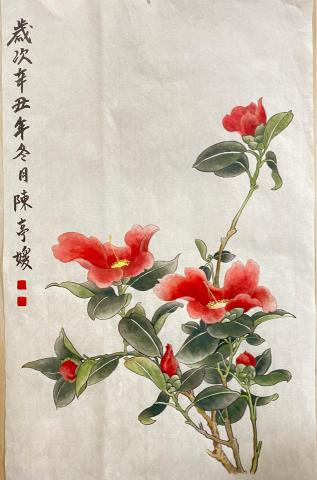 歲次辛丑年冬日陳亭媛